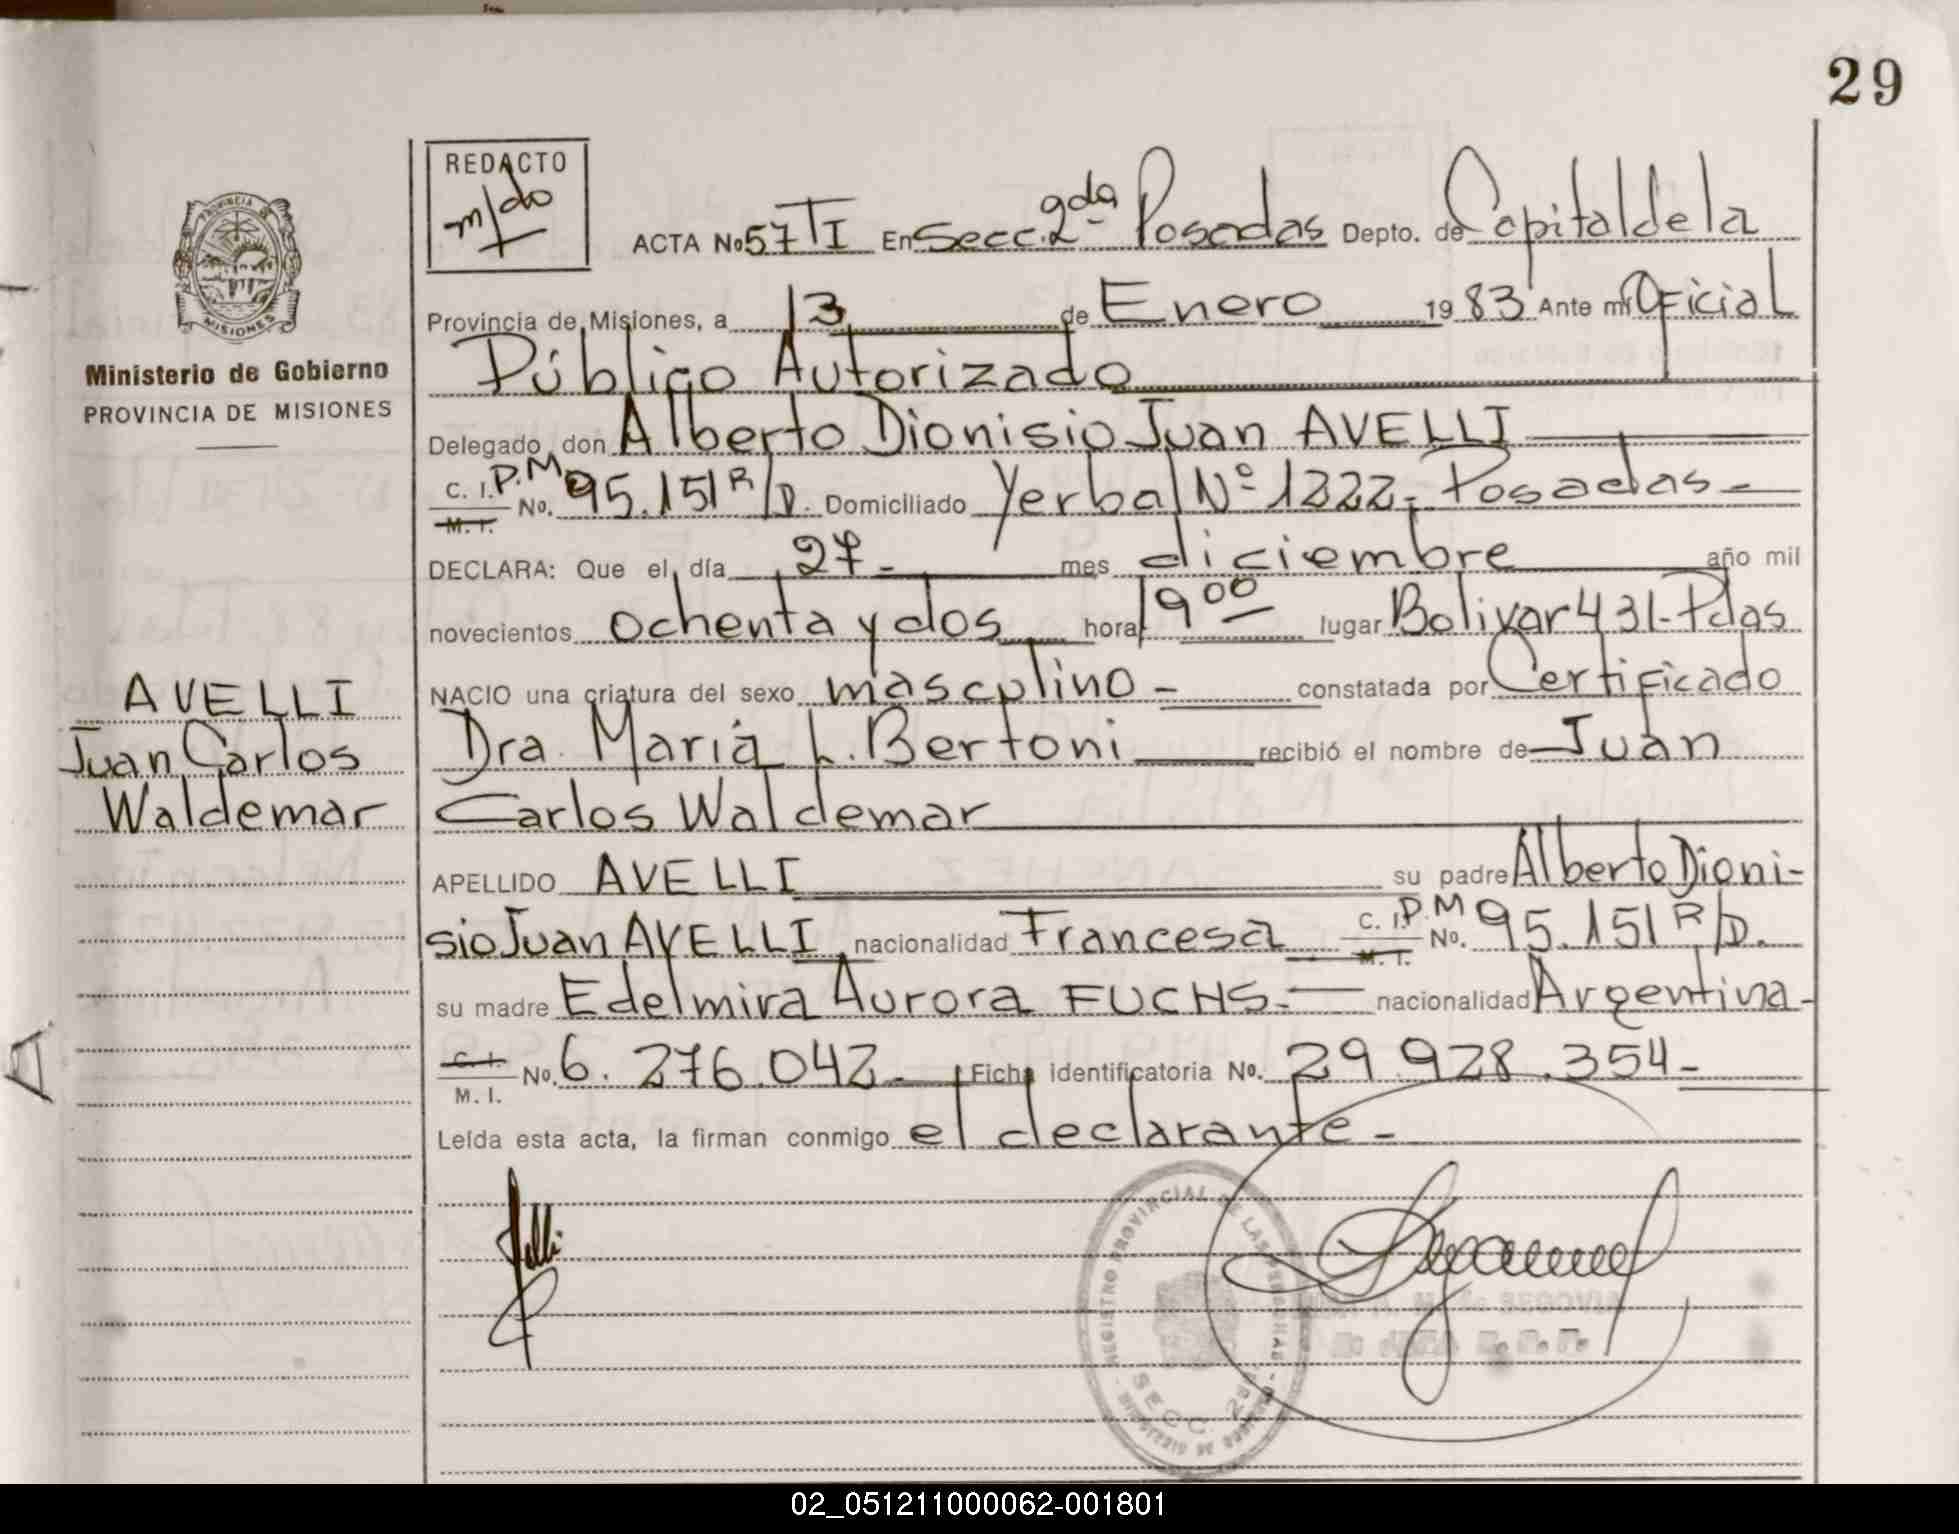 29
REDACTO
m/do
ACTA No 57 TI En Secc. 2da Posadas Depto. de Capital de la
Provincia de Misiones, a 13 de Enero 1983 Ante mí Oficial
Público Autorizado
Delegado, don Alberto Dionisio Juan AVELLI
C. I. P.M M. I. No. 95.151 R/D. Domiciliado Yerbal Nº 1222, Posadas -
DECLARA: Que el día 27 - mes diciembre año mil
novecientos ochenta y dos hora 19 00 lugar Bolivar 431-Pdas
NACIO una criatura del sexo masculino - constatada por Certificado
Dra. Maria L. Bertoni recibió el nombre de Juan
Carlos Waldemar
APELLIDO AVELLI su padre Alberto Dioni-
sio Juan AVELLI nacionalidad Francesa C. I. P.M M. I. No. 95.151 R/D.
su madre Edelmira Aurora FUCHS.- nacionalidad Argentina -
C. I. M. I. No. 6.276.042 - Ficha identificatoria No. 29.928.354 -
Leída esta acta, la firman conmigo el declarante -
PROVINCIA DE
MISIONES
Ministerio de Gobierno
PROVINCIA DE MISIONES
AVELLI
Juan Carlos
Waldemar
REGISTRO PROVINCIAL DE LAS PERSONAS
MINISTERIO DE GOBIERNO
SECC. 2da
02_051211000062-001801